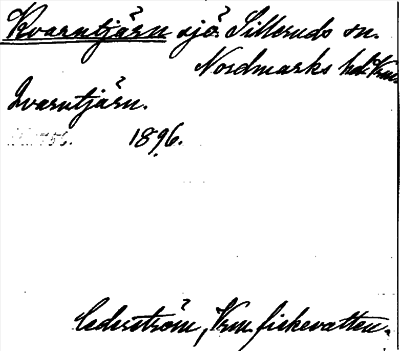 Kvarntjärn sjö. Silleruds sn.
Nordmarks hd. Vrm.
Qvarntjärn.
1896.
Cederström, Vrm fiskevatten.